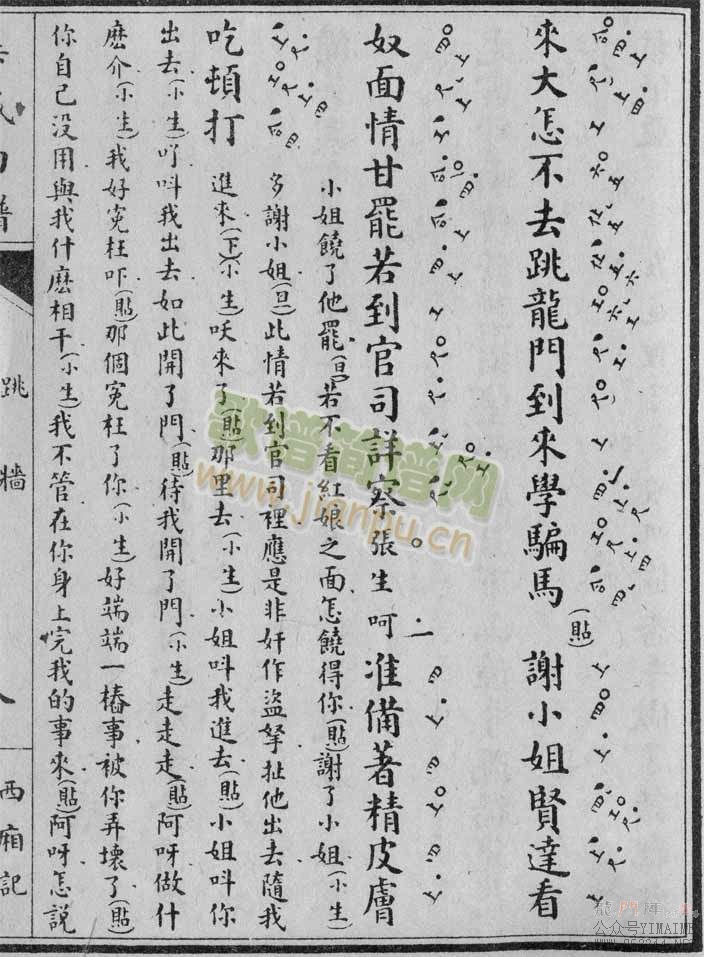 來大怎不去跳龍門到來學騙馬(貼)謝小姐賢達看
奴面情甘罷若到官司詳察張生呵准備著精皮膚
吃頓打
小姐饒了他罷(旦)若不看紅娘之面怎饒得你(貼)謝了小姐(小生)
多謝小姐(旦)此情若到官司裡應是非奸作盜拏扯他出去隨我
進來(下)(小生)呋來了(貼)那里去(小生)小姐叫我進去(貼)小姐叫你
出去(小生)吖叫我出去如此開了門(貼)待我開了門(小生)走走走(貼)阿呀做什
麽介(小生)我好冤枉吓(貼)那個冤枉了你(小生)好端端一樁事被你弄壞了(貼)
你自己没用與我什麽相干(小生)我不管在你身上完我的事來(貼)阿呀怎説
跳牆
西廂記
歌譜簡譜网
www.jianpu.cn
公众号YIMAIME